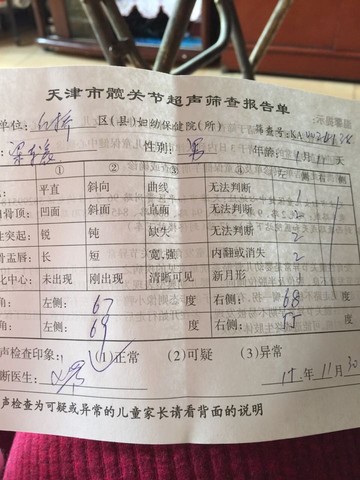 天津市髋关节超声筛查报告单
单位: 红桥 区(县)妇幼保健院(所) 筛查号:
性别: 男 年龄: 1月11天
① ② ③ ④ 左侧 右侧
平直 斜向 曲线 无法判断 1 1
骨顶: 凹面 斜面 直面 无法判断
性突起: 锐 钝 缺失 无法判断 2
骨盂唇: 长 短 宽,强 内翻或消失 2
化中心: 未出现 刚出现 清晰可见 新月形
角: 左侧: 67 度 右侧: 68 度
角: 左侧: 69 度 右侧: 55 度
声检查印象: (1)正常 (2)可疑 (3)异常
断医生: 17年11月30
声检查为可疑或异常的儿童家长请看背面的说明